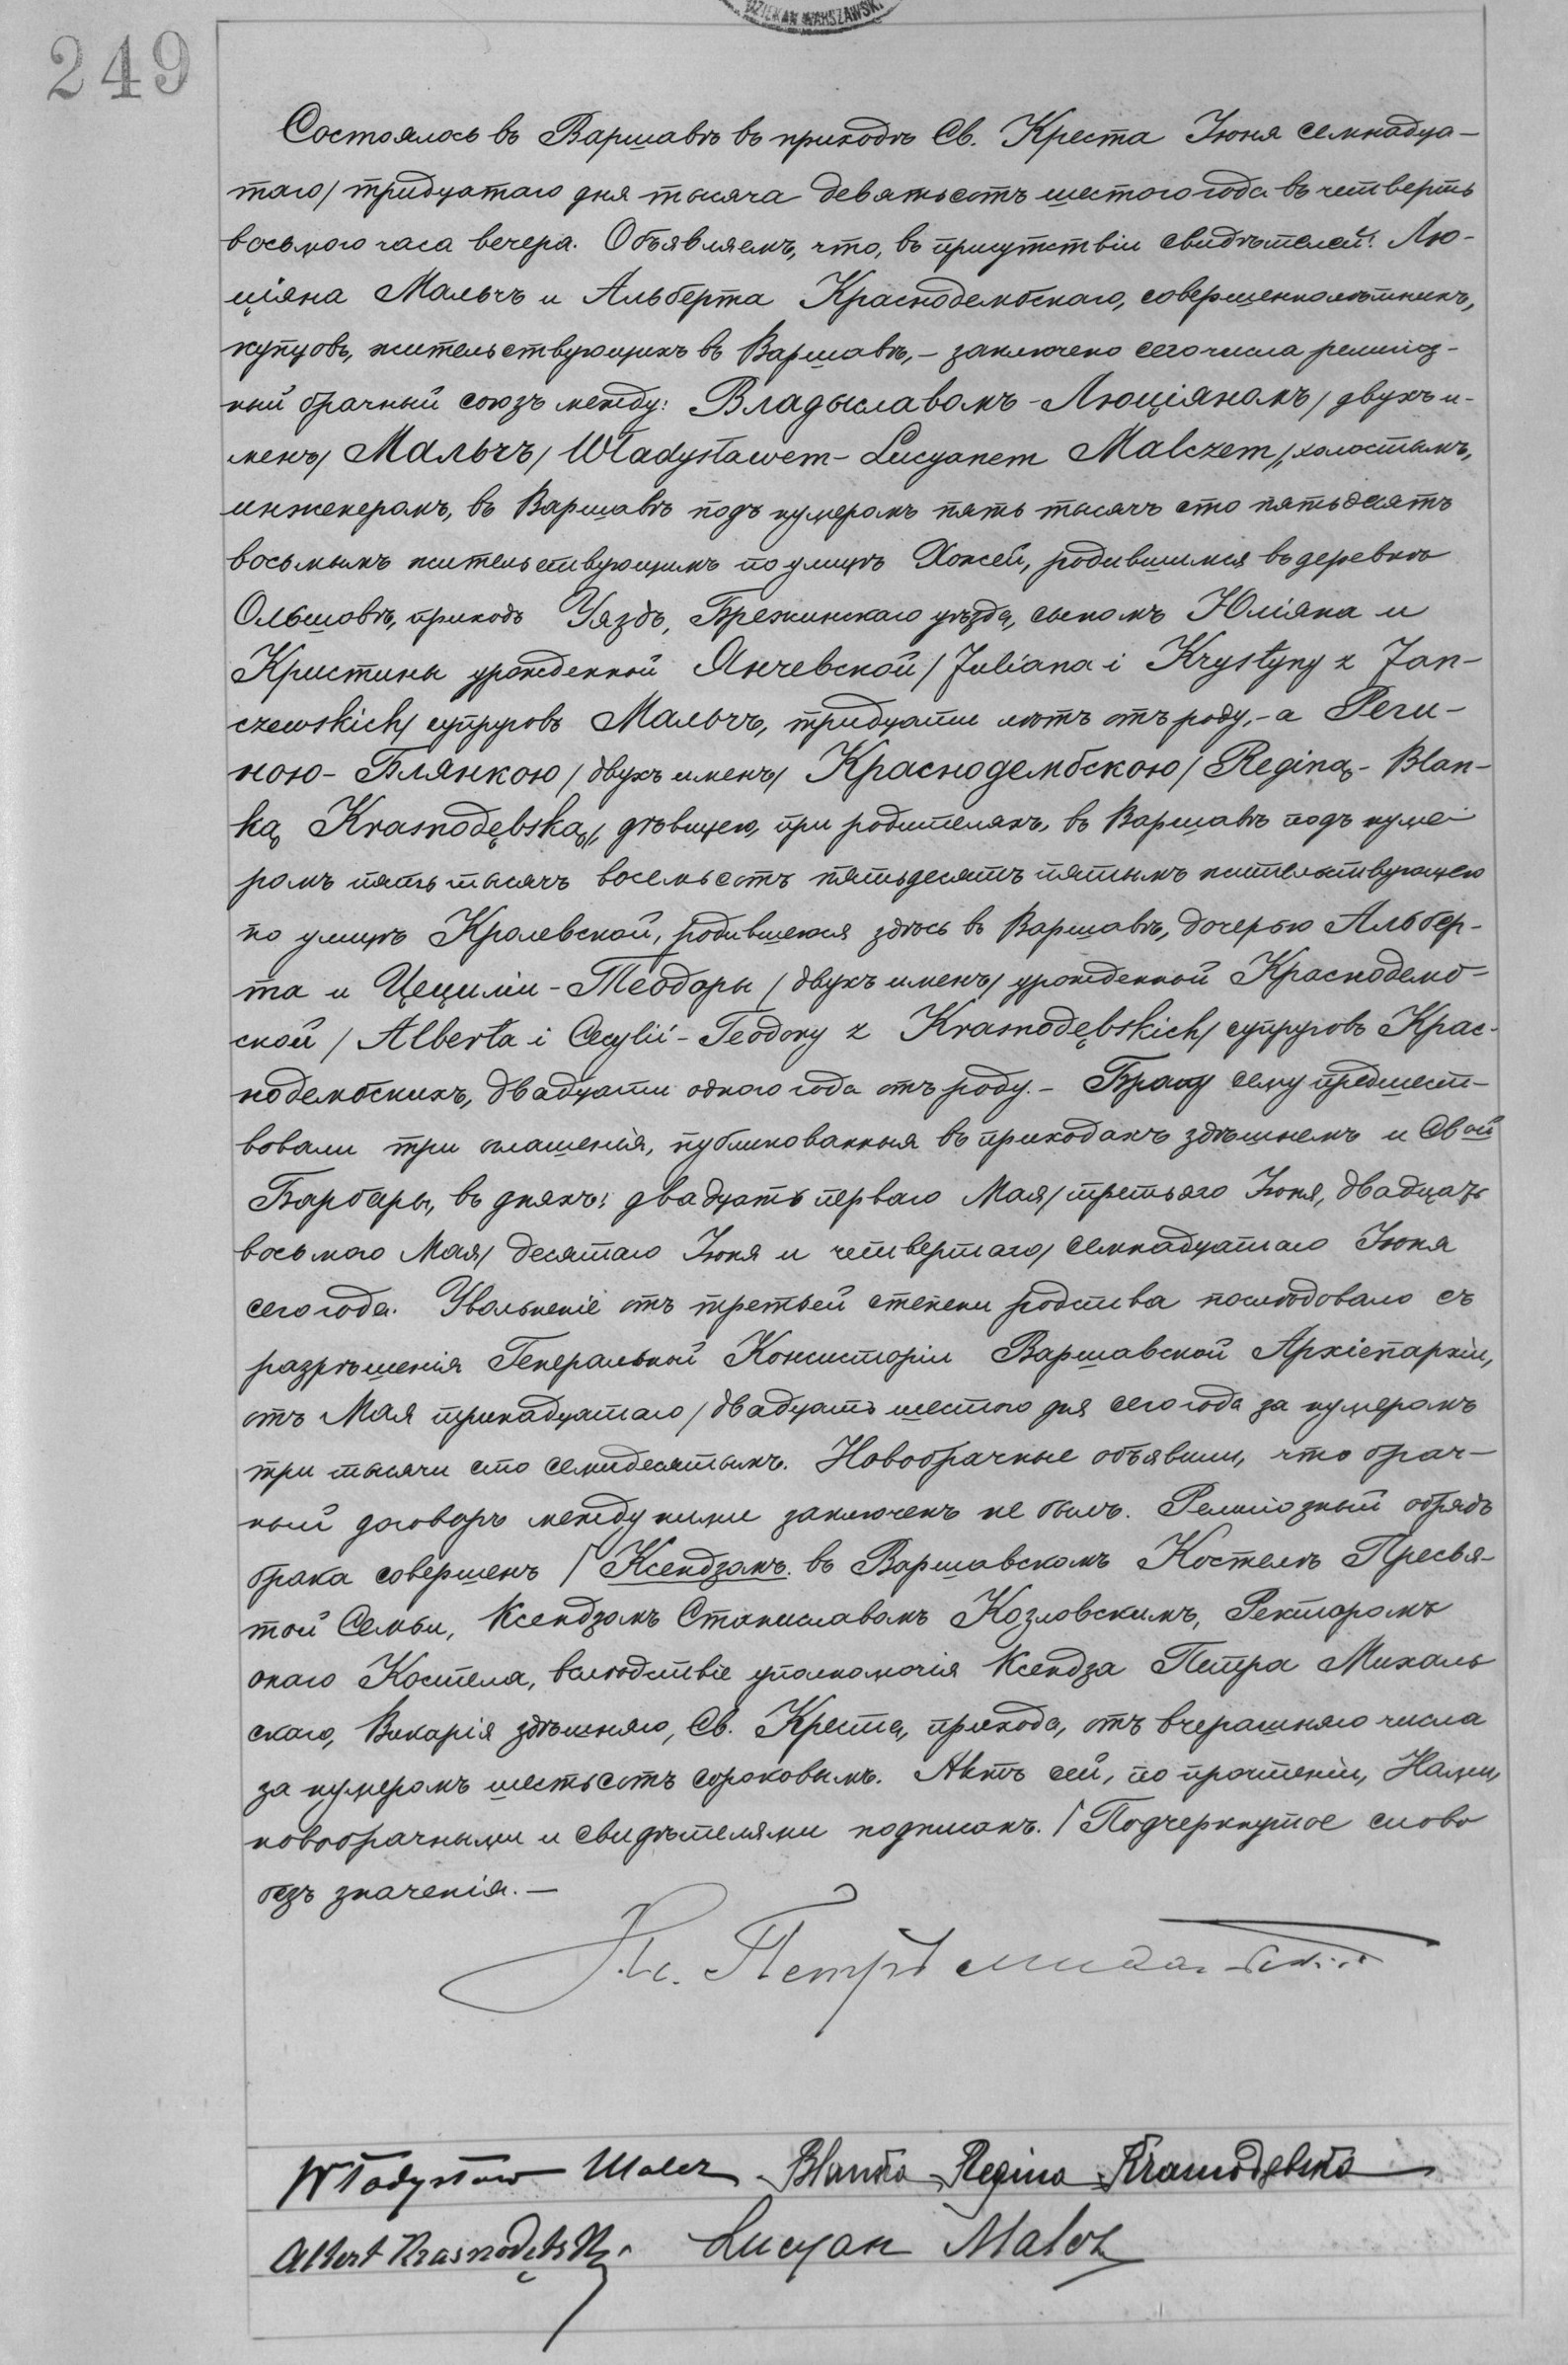 DZIEKAN WARSZAWSKI
249
Состоялось въ Варшавѣ въ приходѣ Св. Креста Іюня семнадца-
таго/ тридцатаго дня тысяча девятьсотъ шестого года въ четверть
восьмого часа вечера. Объявляемъ, что, въ присутствіи свидѣтелей: Лю-
ціяна Мальчъ и Альберта Краснодембскаго, совершеннолѣтнихъ,
купцовъ, жительствующихъ въ Варшавѣ, - заключено сего числа религіоз-
ный брачный союзъ между: Владыславомъ-Люціяномъ/ двухъ и-
менъ/ Мальчъ/ Władysławem-Lucyanem Malczem/, холостымъ,
инженеромъ, въ Варшавѣ подъ нумеромъ пять тысячъ сто пятьдесятъ
восьмымъ жительствующимъ по улицѣ Хожей, родившимся въ деревнѣ
Ольшовѣ, приходъ Уяздъ, Брежинскаго уѣзда, сыномъ Юліяна и
Кристины урожденной Янчевской/ Juliana i Krystyny z Jan-
czewskich/ супруговъ Мальчъ, тридцати лѣтъ отъ роду, - а Реги-
ною-Блянкою/ двухъ именъ/ Краснодембскою/ Reginą-Blan-
ką Krasnodębską/, дѣвицею, при родителяхъ, въ Варшавѣ подъ нуме-
ромъ пять тысячъ восемьсотъ пятьдесятъ пятымъ жительствующею
по улицѣ Кролевской, родившеюся здѣсь въ Варшавѣ, дочерью Альбер-
та и Цециліи-Теодоры/ двухъ именъ/ урожденной Краснодемб-
ской/ Alberta i Cecylii-Teodory z Krasnodębskich/ супруговъ Крас-
нодембскихъ, двадцати одного года отъ роду. - Браку сему предшест-
вовали три оглашенія, публикованныя въ приходахъ здѣшнемъ и Свой
Барбары, въ дняхъ: двадцать перваго Мая/ третьяго Іюня, двадцать
восьмого Мая/ десятаго Іюня и четвертаго/ семнадцатаго Іюня
сего года. Увольненіе отъ третьей степени родства послѣдовало съ
разрѣшенія Генеральной Консисторіи Варшавской Архіепархіи,
отъ Мая тринадцатаго/ двадцать шестого дня сего года за нумеромъ
три тысячи сто семидесятымъ. Новобрачные объявили, что брач-
ный договоръ между ними заключенъ не былъ. Религіозный обрядъ
брака совершенъ / Ксендзомъ. въ Варшавскомъ Костелѣ Пресвя-
той Семьи, Ксендзомъ Станиславомъ Козловскимъ, Ректоромъ
онаго Костела, вслѣдствіе уполномочія Ксендза Петра Михаль
скаго, Викарія здѣшняго, Св. Креста, прихода, отъ вчерашняго числа
за нумеромъ шестьсотъ сороковымъ. Актъ сей, по прочтеніи, Нами,
новобрачными и свидѣтелями подписанъ. / Подчеркнутое слово
безъ значенія. -
Кс. Петръ
Władysław Malcz Blanka Regina Krasnodębska
Albert Krasnodębski. Lucyan Malcz